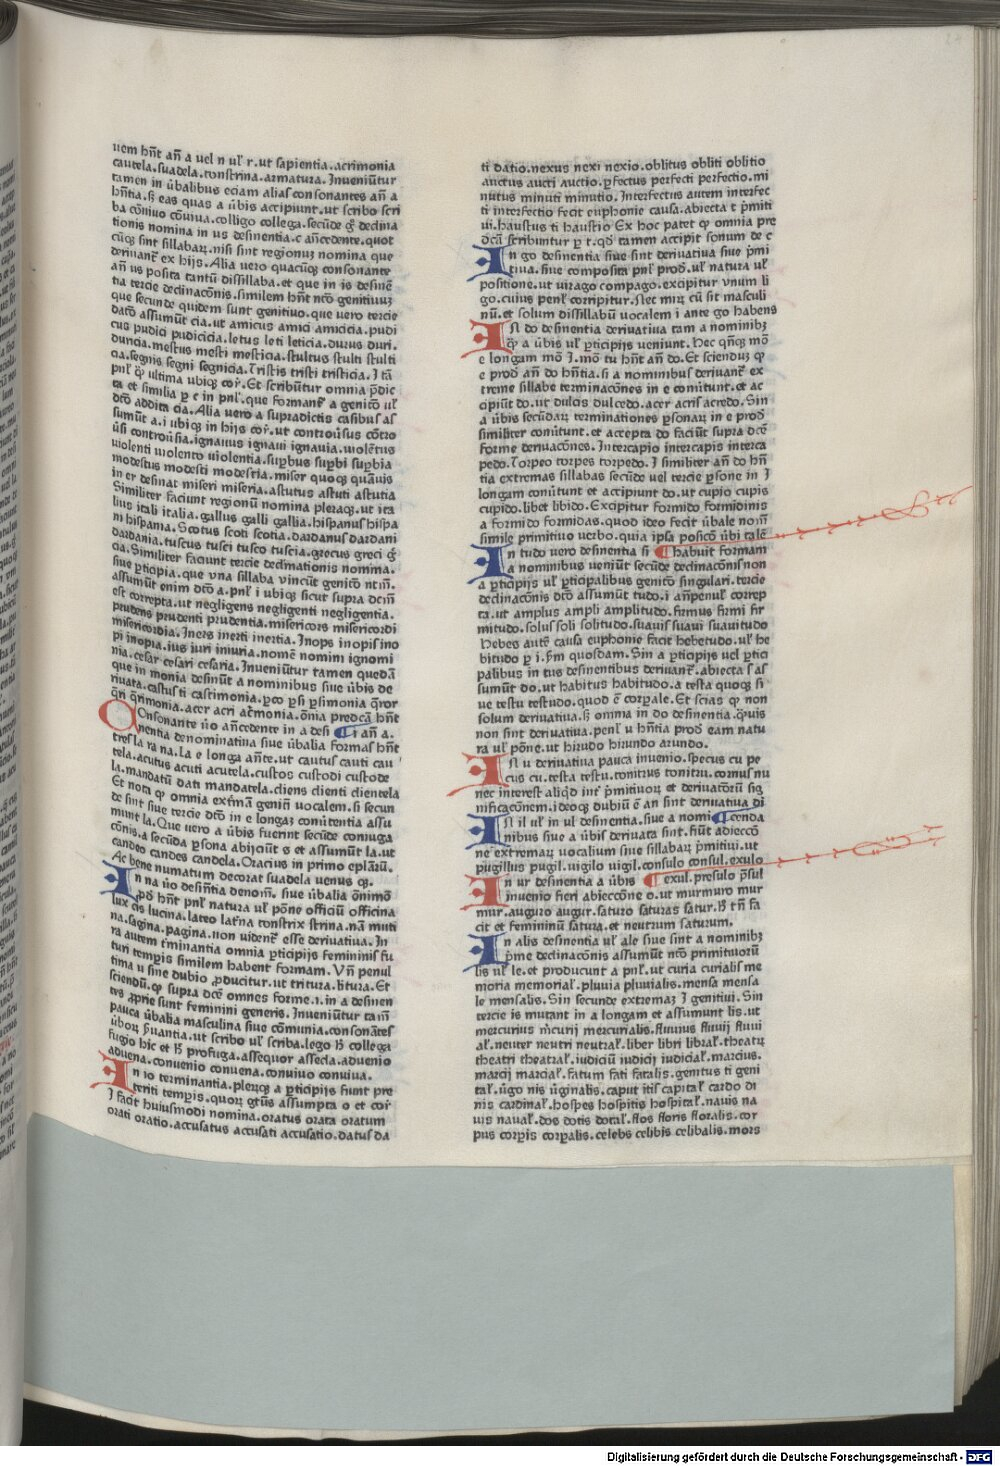 uem hn̄t an̄ a uel n ul̵ r.ut sapientia.acrimonia
cautela.suadela.tonstrina.armatura.Inueniūtur
tamen in ūbalibus eciam alias consonantes an̄ a
hn̄tia.s̄ eas quas a ūbis accipiunt.ut scribo scri
ba cōniuo cōuiua.colligo collega.secūde q̄ declina
tionis nomina in us desinentia.c an̄cedente.quot
cūq̄ sint sillabaꝝ.nisi sint regionuꝫ nomina que
deriuant̄ ex hijs.Alia uero quacūqꝫ consonante
an̄ us posita tantū dissillaba.et que in is desinē
tia tercie declinacōnis.similem hn̄t nc̄o genitiuuꝫ
que secunde quidem sunt genitiuo.que uero tercie
datō assumūt cia.ut amicus amici amicicia.pudi
cus pudici pudicicia.letus leti leticia.durus duri.
duricia.mestus mesti mesticia.stultus stulti stulti
cia.segnis segni segnicia.Tristis tristi tristicia.I tā
pnl̵ qꝫ ultima ubiqꝫ cor̄.Et scribūtur omnia p̄dic
ta et similia ꝑ c in pnl̵.que formant̄ a genitō ul̵
dtō addita cia.Alia uero a supradictis casibus as
sumūt a.i ubiqꝫ in hijs cor̄.ut controūsus cōtro
ūsi controūsia.ignauus ignaui ignauia.uiolētus
uiolenti uiolento uiolentia.suꝑbus suꝑbi suꝑbia
modestus modesti modestia.miser quoqꝫ quāuis
in er desinat miseri miseria.astutus astuti astutia
Similiter faciunt regionū nomina pleraqꝫ.ut ita
lius itali italia.gallus galli gallia.hispanus hispa
ni hispania.Scotus scoti scotia.dardanus dardani
dardania.tuscus tusci tusco tuscia.grecus greci g̃
cia.Similiter faciunt tercie declinationis nomina.
siue ꝑticipia.que vna sillaba vincūt genitō ntm̄.
assumūt enim dtō a.pnl̵ i ubiqꝫ sicut supra dcm̄
est correpta.ut negligens negligenti negligentia.
prudens prudenti prudentia.misericors misericordi
misericordia.Iners inerti inertia.Inops inopis ino
pi inopia.ius iuri iniuria.nomē nomini ignomi
nia.cesar cesari cesaria.Inueniūtur tamen quedā
que in monia desinūt a nominibus siue ūbis de
riuata.castus ti castimonia.ꝑco ꝑsi ꝑsimonia q̄ror
q̄ri q̄rimonia.acer acri ac̄monia.ōnia predcā hn̄t
COnsonante ūo an̄cedente in a desi ¶ i an̄ a.
nentia denominatiua siue ūbalia formas hn̄t
tres la ra na.La e longa an̄te.ut cautus cauti cau
tela.acutus acuti acutela.custos custodi custode
la.mandatū dati mandatela.cliens clienti clientela
Et nota qꝫ omnia extm̄a geniti uocalem.si secun
de sint siue tercie dtō in e longaꝫ conūtentia assu
munt la.Que uero a ūbis fuerint secūde coniuga
cōnis.a secūda ꝑsona abijciūt s et assumūt la.ut
candeo candes candela.Oracius in primo epl̵arū.
Ac bene numatum decorat suadela uenus qꝫ.
In na ūo desin̄tia denom̄. siue ūbalia ōnimo
ꝓd hn̄t pnl̵ natura ul̵ pōne officiū officina
lux cis lucina.lateo lat̄na tonstrix strina.nā muti
na.sagina.pagina.non uident̄ esse deriuatiua.In
ra autem t̄minantia omnia ꝑticipijs femininis fu
turi tempis similem habent formam.Vn̄ penul
tima u sine dubio ꝓducitur.ut tritura.litura.Et
sciendū.qꝫ supra dcē omnes forme.i.in a desinen
tes ꝓprie sunt feminini generis.Inueniūtur tam̄
pauca ūbalia masculina siue cōmunia.consonātes
ūborꝫ s̄uantia.ut scribo ul̵ scriba.lego h̄ collega
fugio hic et h̄ profuga.assequor assecla.aduenio
aduena.conuenio conuena.conuiuo conuiua.
In io terminantia.pleraqꝫ a ꝑticipijs fiunt pre
teriti tempis.quorꝫ gtūs assumpta o et cor̄
I facit huiusmodi nomina.oratus orata oratum
orati oratio.accusatus accusati accusatio.datus da
ti datio.nexus nexi nexio.oblitus obliti oblitio
auctus aucti auctio.ꝑfectus perfecti perfectio.mi
nutus minuti minutio.Interfectus autem interfec
ti interfectio fecit euphonie causa.abiecta t p̄miti
ui.haustus ti haustio Ex hoc patet qꝫ omnia pre
dcā scribuntur ꝑ t.qd̄ tamen accipit sonum de c
In go desinentia siue sint deriuatiua siue p̄mi
tiua.siue composita pnl̵ prod̄.ul̵ natura ul̵
positione.ut uirago compago.excipitur vnum li
go.cuius penl̵ corripitur.Nec mirꝫ cū sit masculi
nū.et solum dissillabū uocalem i ante go habens
IN do desinentia deriuatiua tam a nominibꝫ
qꝫ a ūbis ul̵ ꝑticipijs ueniunt.Hec qn̄qꝫ mō
e longam mō I.mō tu hn̄t an̄ do.Et scienduꝫ qꝫ
e prod̄ an̄ do hn̄tia.si a nominibus deriuant̄ ex
treme sillabe terminacōnes in e conūtunt.et ac
cipiūt do.ut dulcis dulcedo.acer acris acredo.Sin
a ūbis secūdarꝫ terminationes ꝑsonarꝫ in e prod̄
similiter conūtunt.et accepta do faciūt supra dcē
forme deriuacōnes.Intercapio intercapis interca
pedo.Torpeo torpes torpedo.I similiter an̄ do hn̄
tia extremas sillabas secūde uel tercie ꝑsone in I
longam conūtunt et accipiunt do.ut cupio cupis
cupido.libet libido.Excipitur formido formidinis
a formido formidas.quod ideo fecit ūbale nom̄
simile primitiuo uerbo.quia ipsa positō ūbi talē
In tudo uero desinentia si ¶ habuit formam
a nominibus ueniūt secūde declinacōnis non
a ꝑticipijs ul̵ ꝑticipalibus genitō singulari.tercie
declinacōnis dtō assumūt tudo.i an̄penul̵ correp
ta.ut amplus ampli amplitudo.firmus firmi fir
mitudo.solus soli solitudo.suauis suaui suauitudo
Hebes aut̄ causa euphonie facit hebetudo.ul̵ he
bitudo ꝑ i.s̄m quosdam.Sin a ꝑticipijs uel ꝑtici
palibus in tus desinentibus deriuant̄.abiecta s as
sumūt do.ut habitus habitudo.a testa quoqꝫ si
ue testu testudo.quod ē corꝑale.Et scias qꝫ non
solum deriuatiua.s̄ omnia in do desinentia.quis
non sint deriuatiua.penl̵ u hn̄tia prod̄ eam natu
ra ul̵ pōne.ut hirudo hirundo arundo.
IN u deriuatiua pauca inuenio.specus cu pe
cus cu.testa testu.tonitrus tonitru.cornus nu
nec interest aliqd̄ int̄ p̄mitiuorꝫ et deriuatorū sig
nificacōnem.ideoqꝫ dubiū ē an sint deriuatiua di
IN il ul̵ in ul desinentia.siue a nomi ¶ cenda
nibus siue a ūbis deriuata sint.fiūt adieccō
ne extremarꝫ uocalium siue sillabarꝫ p̄mitiui.ut
pugillus pugil.uigilo vigil.consulo consul.exulo
In ur desinentia a ūbis ¶ exul.presulo p̄sul
inuenio fieri abieccōne o.ut murmuro mur
mur.auguro augur.saturo saturas satur.h̄ tn̄ fa
cit et femininū satura.et neutrum saturum.
In alis desinentia ul̵ ale siue sint a nominibꝫ
p̄me declinacōnis assumūt ntō primitiuorū
lis ul̵ le.et producunt a pnl̵.ut curia curialis me
moria memorial̵.pluuia pluuialis.mensa mensa
le mensalis.Sin secunde extremaꝫ I genitiui.Sin
tercie is mutant in a longam et assumunt lis.ut
mercurius m̄curij mercurialis.fluuius fluuij fluui
al̵.neuter neutri neutral̵.liber libri libral̵.theatrꝫ
theatri theatral̵.iudiciū iudicij iudicial̵.marcius.
marcij marcial̵.fatum fati fatalis.genitus ti geni
tal̵.ūgo nis ūginalis.caput itis̄ capital̵ cardo di
nis cardinal̵.hospes hospitis hospital̵.nauis na
uis naual̵.dos dotis dotal̵.flos floris floralis.cor
pus corꝑis corꝑalis.celebs celibis celibalis.mors
Digitalisierung gefördert durch die Deutsche Forschungsgemeinschaft - DFG